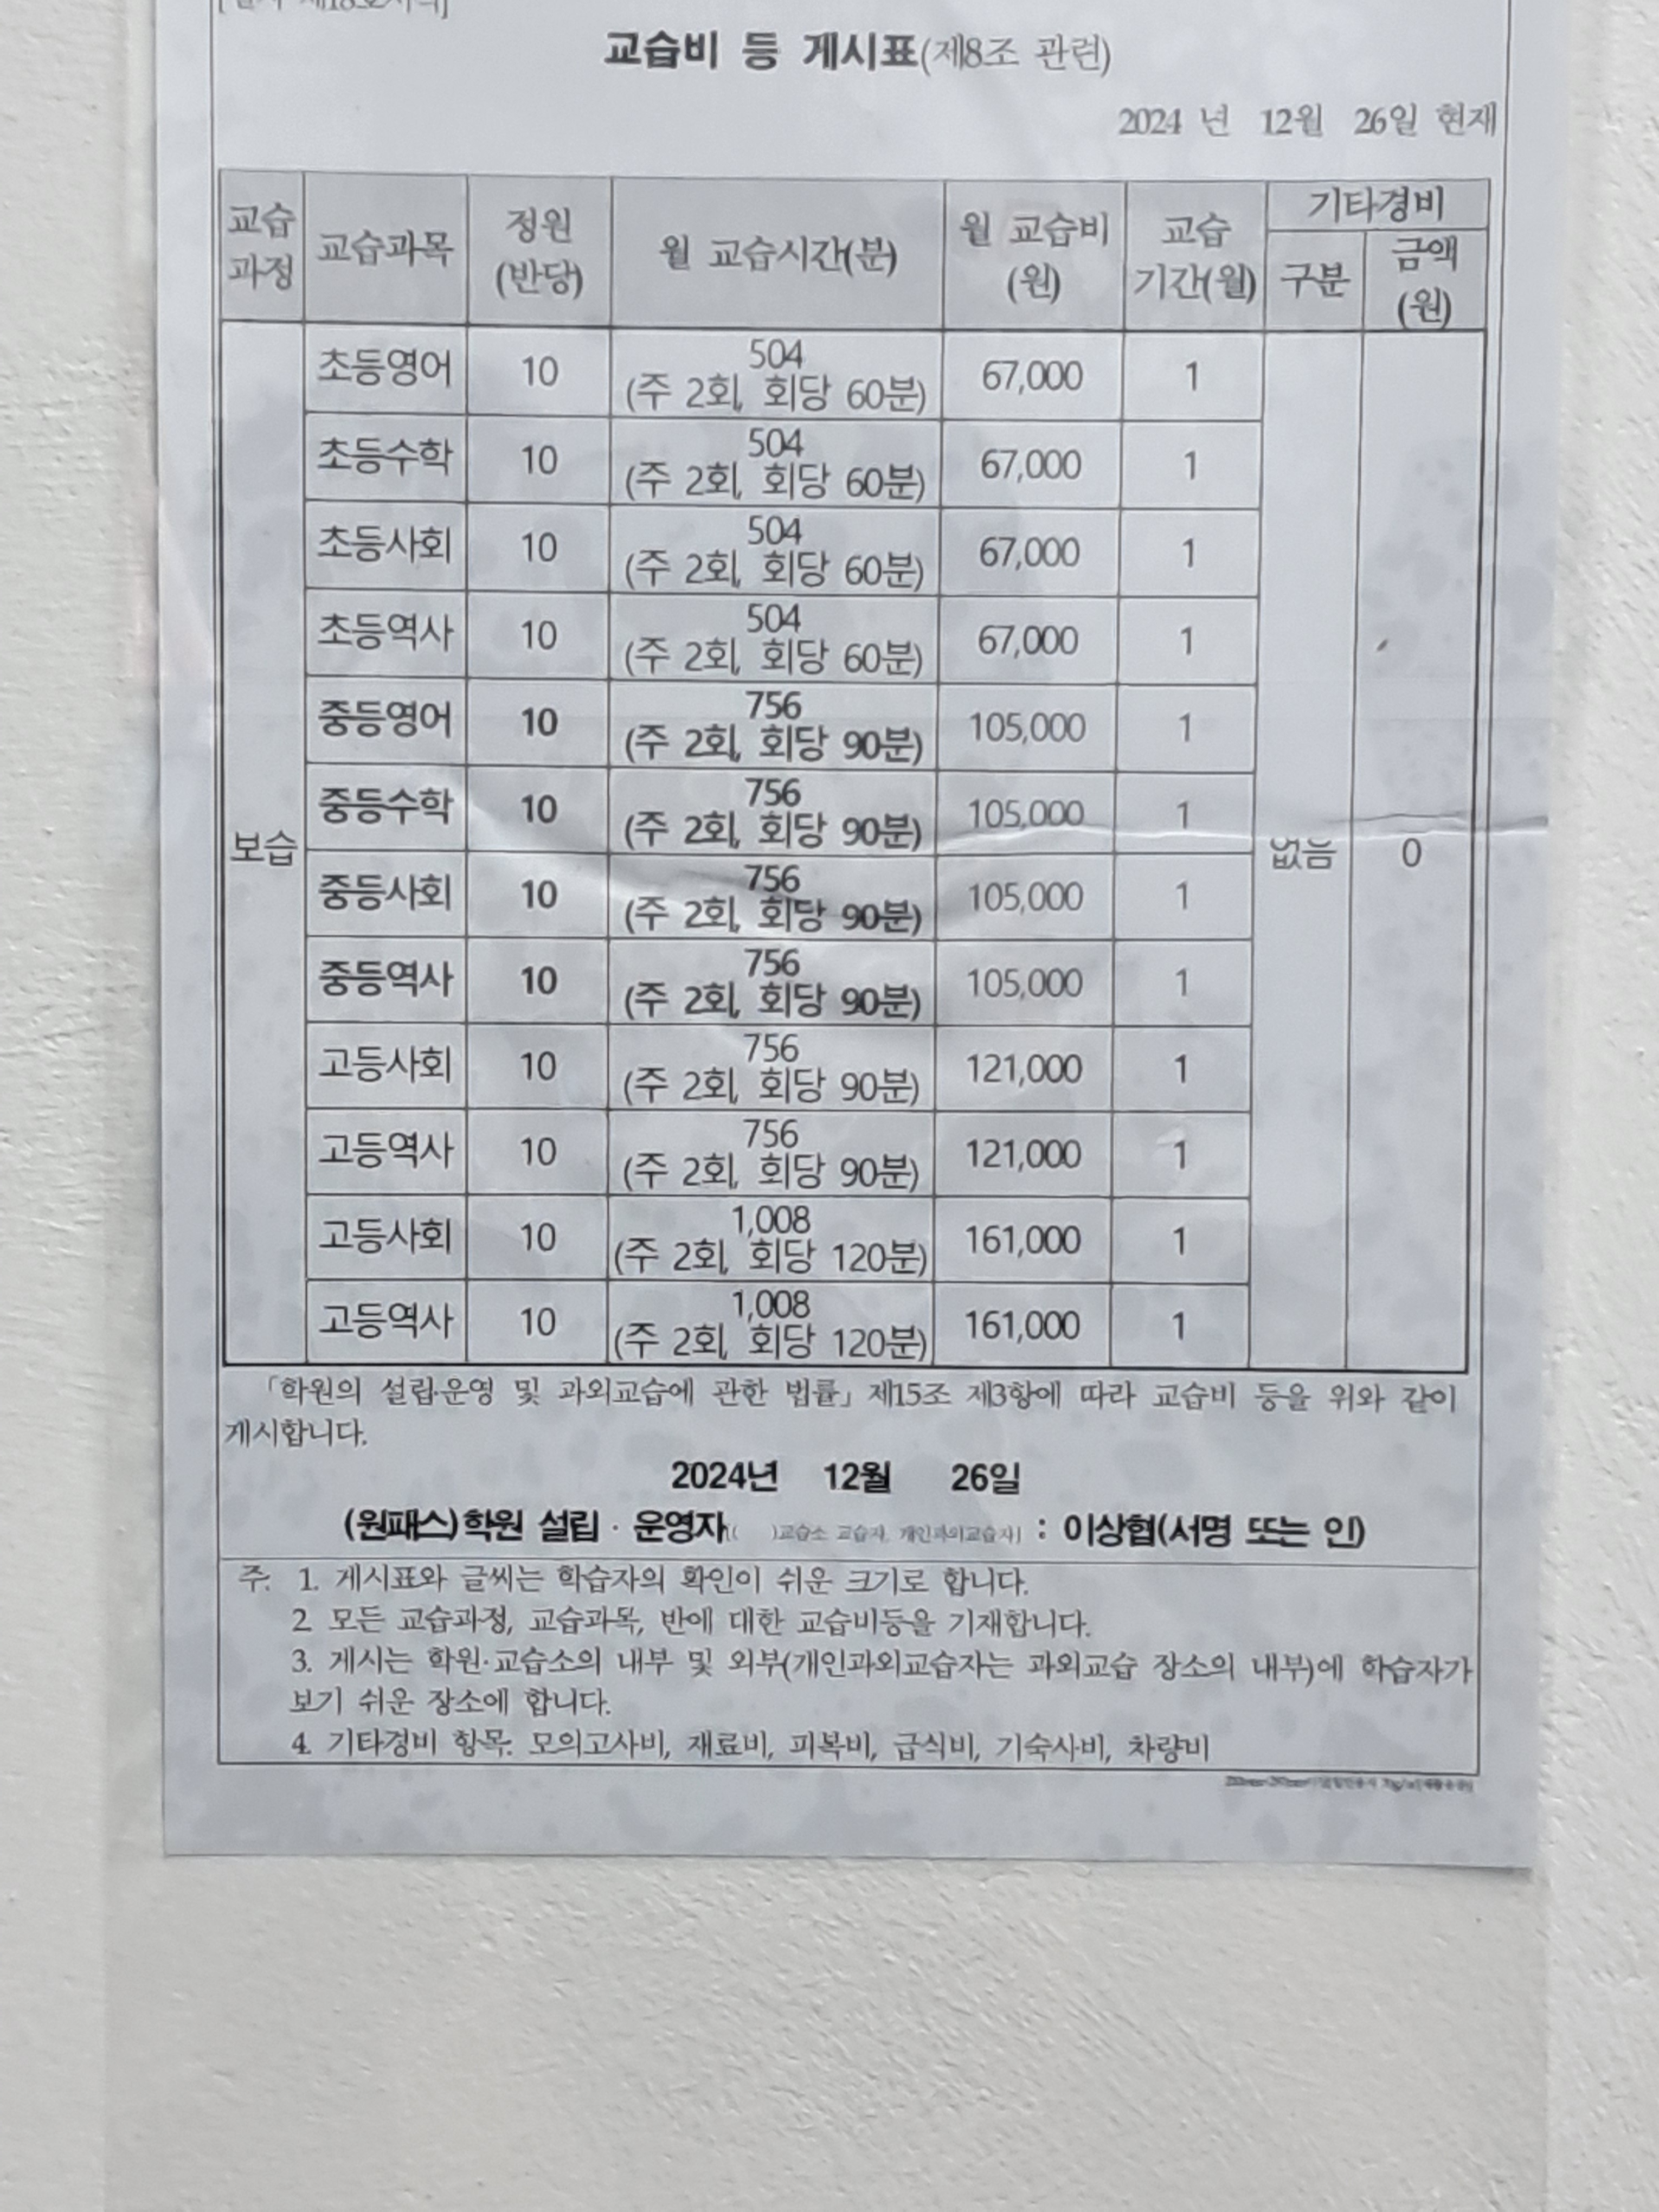 교습비 등 게시표(제8조 관련)
2024 년 12월 26일 현재
교습과정 교습과목 정원(반당) 월 교습시간(분) 월 교습비(원) 교습기간(월) 기타경비 구분 금액(원)
보습
없음 0
초등영어 10 504 (주 2회, 회당 60분) 67,000 1
초등수학 10 504 (주 2회, 회당 60분) 67,000 1
초등사회 10 504 (주 2회, 회당 60분) 67,000 1
초등역사 10 504 (주 2회, 회당 60분) 67,000 1
중등영어 10 756 (주 2회, 회당 90분) 105,000 1
중등수학 10 756 (주 2회, 회당 90분) 105,000 1
중등사회 10 756 (주 2회, 회당 90분) 105,000 1
중등역사 10 756 (주 2회, 회당 90분) 105,000 1
고등사회 10 756 (주 2회, 회당 90분) 121,000 1
고등역사 10 756 (주 2회, 회당 90분) 121,000 1
고등사회 10 1,008 (주 2회, 회당 120분) 161,000 1
고등역사 10 1,008 (주 2회, 회당 120분) 161,000 1
「학원의 설립·운영 및 과외교습에 관한 법률」 제15조 제3항에 따라 교습비 등을 위와 같이
게시합니다.
2024년 12월 26일
(원패스)학원 설립 · 운영자[( )교습소 교습자, 개인과외교습자] : 이상협(서명 또는 인)
주. 1. 게시표와 글씨는 학습자의 확인이 쉬운 크기로 합니다.
2. 모든 교습과정, 교습과목, 반에 대한 교습비등을 기재합니다.
3. 게시는 학원·교습소의 내부 및 외부(개인과외교습자는 과외교습 장소의 내부)에 학습자가
보기 쉬운 장소에 합니다.
4. 기타경비 항목: 모의고사비, 재료비, 피복비, 급식비, 기숙사비, 차량비